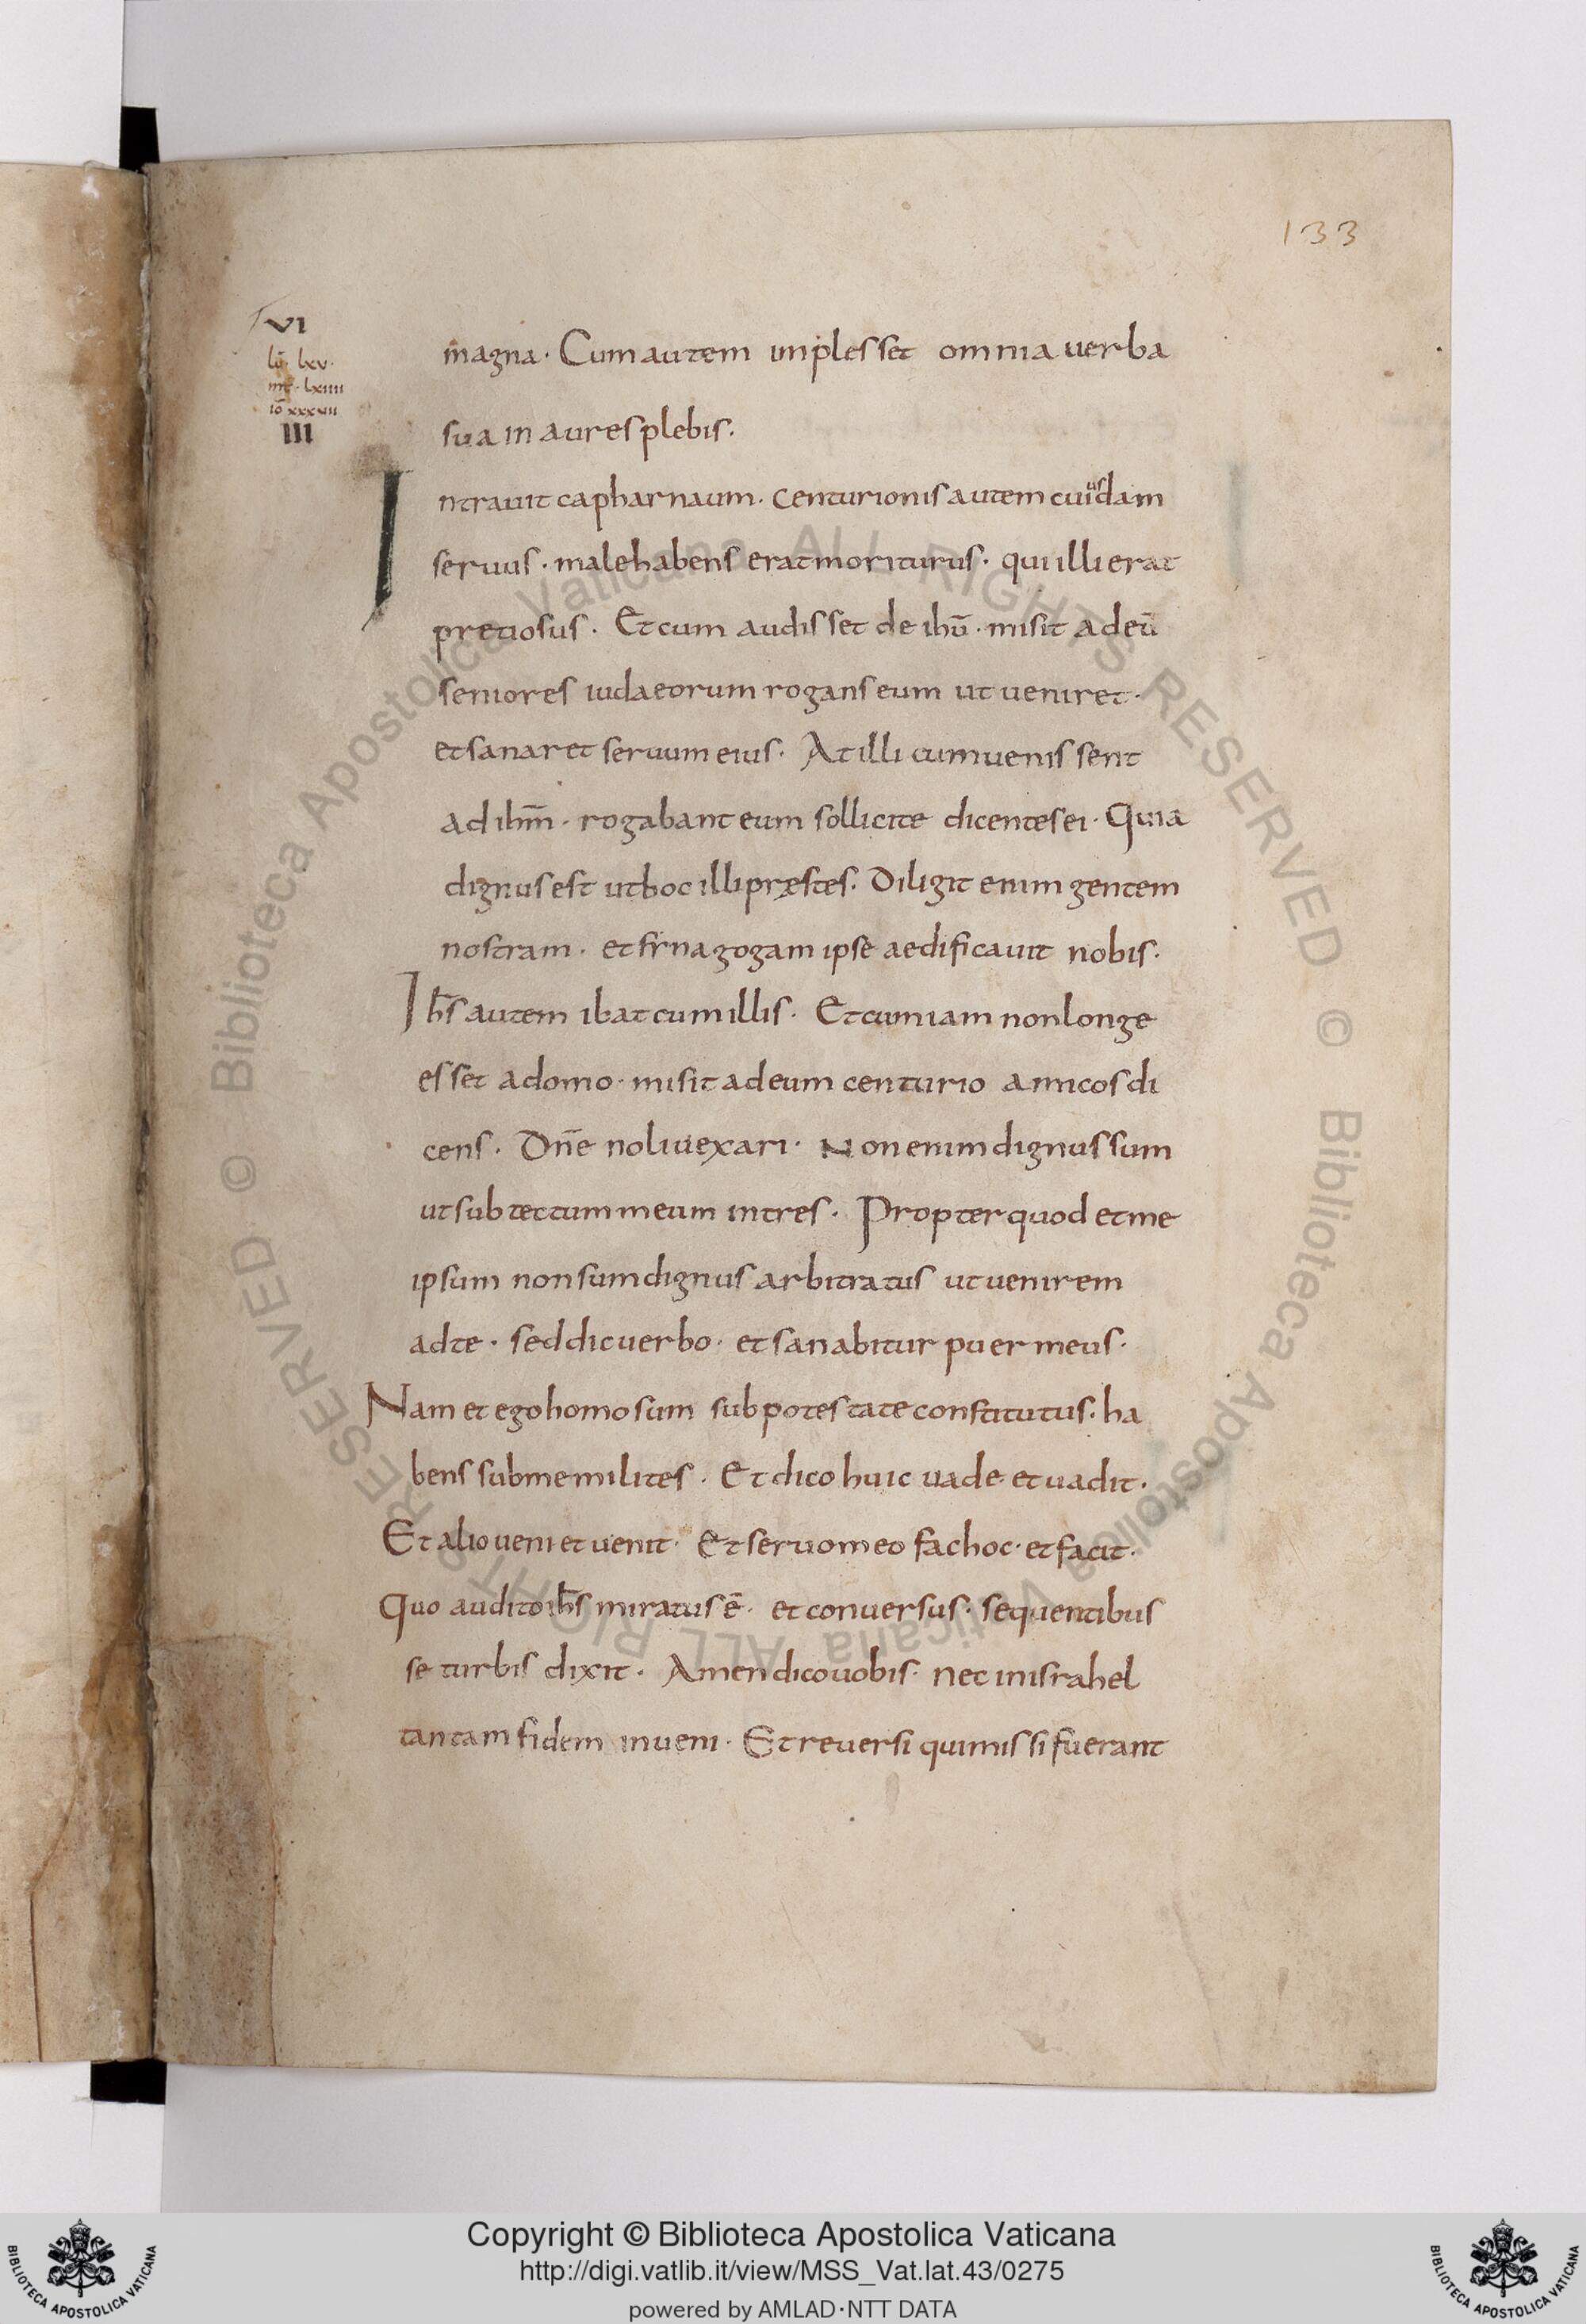 133
VI
lū · lxv ·
mt̄ · lxiiii
iō xxxvii
III
magna · Cum autem implesset omnia verba
sua in aures plebis ·
Intravit capharnaum · Centurionis autem cuiusdam
servus · male habens erat moriturus · qui illi erat
pretiosus · Et cum audisset de ihū · misit ad eū
seniores iudaeorum rogans eum ut veniret ·
et sanaret servum eius · At illi cum venissent
ad ihm̄ · rogabant eum sollicite dicentes ei · Quia
dignus est ut hoc illi pręstes · Diligit enim gentem
nostram · et synagogam ipse aedificavit nobis ·
Ihs̄ autem ibat cum illis · Et cum iam non longe
esset a domo · misit ad eum centurio amicos di
cens · Dn̄e noli vexari · Non enim dignus sum
ut sub tectum meum intres · Propter quod et me
ipsum non sum dignus arbitratus ut venirem
ad te · sed dic verbo · et sanabitur puer meus ·
Nam et ego homo sum sub potestate constitutus · ha
bens sub me milites · Et dico huic vade · et vadit ·
Et alio veni et venit · Et servo meo fac hoc · et facit ·
Quo audito ihs̄ miratus ē · et conversus · sequentibus
se turbis dixit · Amen dico vobis · nec in israhel
tantam fidem inveni · Et reversi qui missi fuerant
© Biblioteca Apostolica Vaticana ALL RIGHTS RESERVED
© Biblioteca Apostolica Vaticana ALL RIGHTS RESERVED
Copyright © Biblioteca Apostolica Vaticana
http://digi.vatlib.it/view/MSS_Vat.lat.43/0275
powered by AMLAD·NTT DATA
BIBLIOTECA APOSTOLICA VATICANA
BIBLIOTECA APOSTOLICA VATICANA